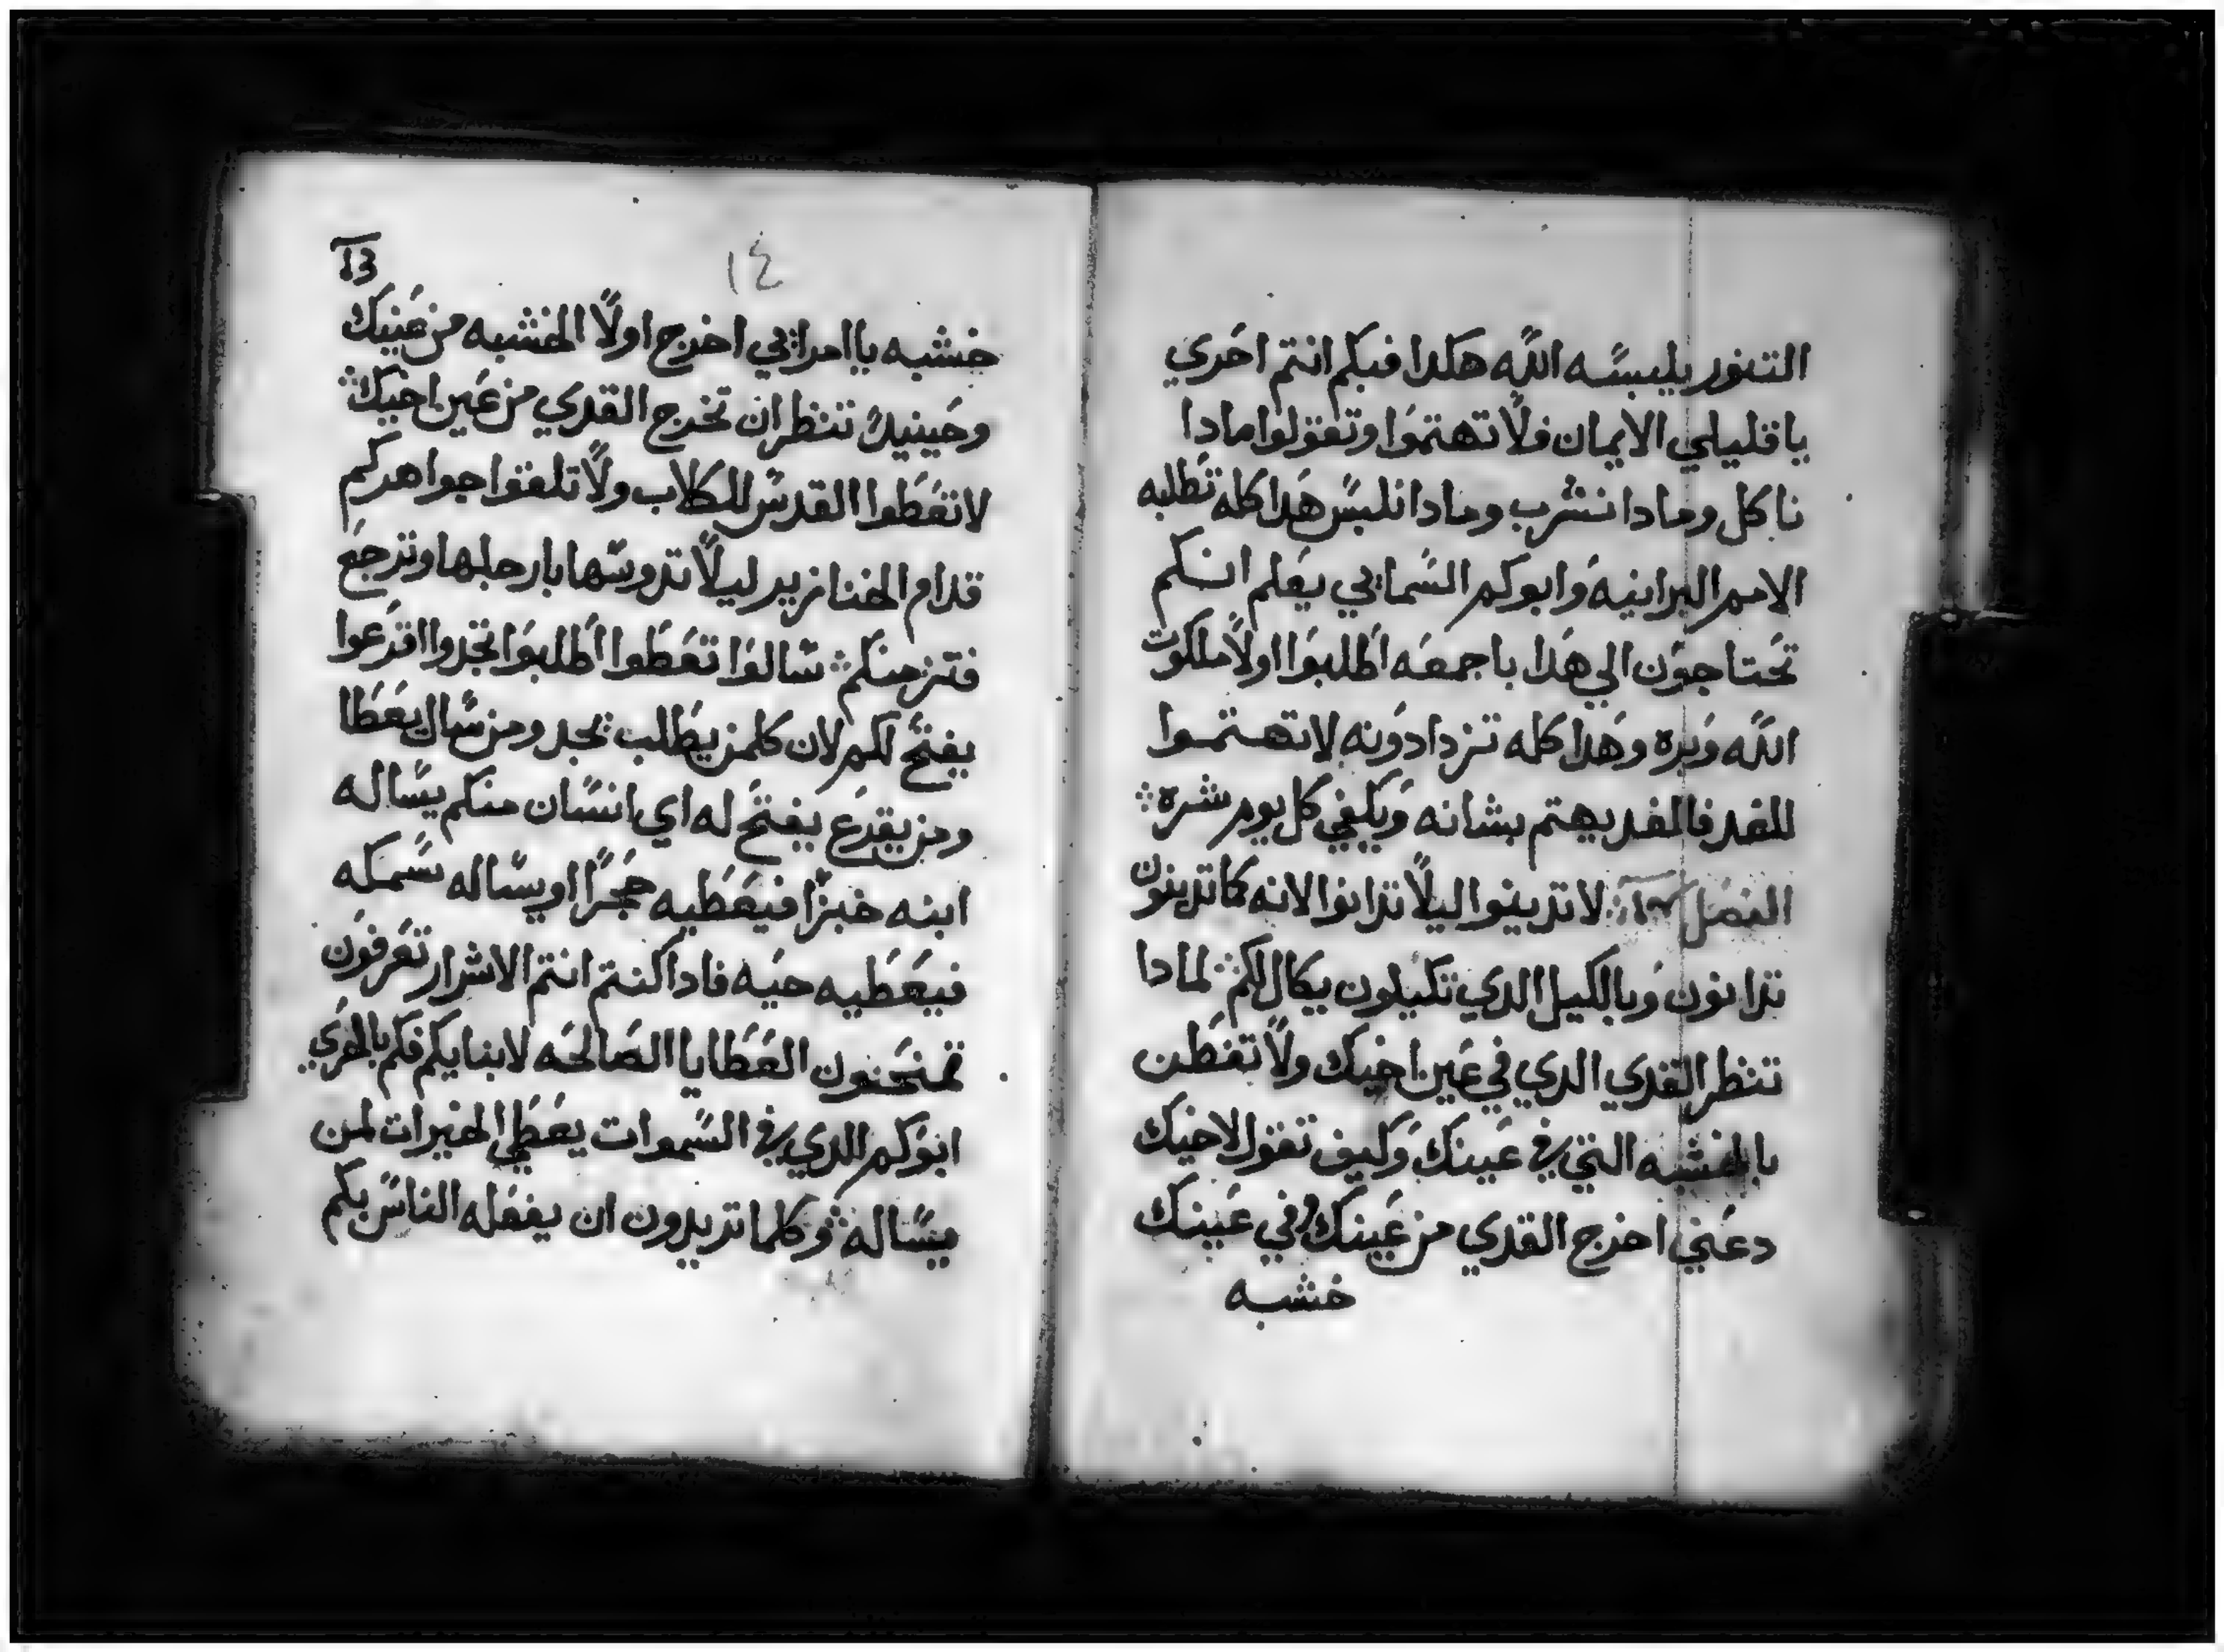 التنور يلبسه الله هكدا فبكم انتم احري
يا قليلي الايمان فلا تهتموا وتقولوا مادا
ناكل ومادا نشرب ومادا نلبس هدا كله تطلبه
الامم البرانيه وابوكم السمايي يعلم انكم
تحتاجون الي هدا باجمعه اطلبوا اولا ملكوت
الله وبره وهدا كله تزدادونه لا تهتموا
للغد فالغد يهتم بشانه ويكفي كل يوم شره
الفصل لا تدينوا ليلا تدانوا لانه كما تدينون
تدانون وبالكيل الدي تكيلون يكال لكم لمادا
تنظر القدي الدي في عين اخيك ولا تفطن
بالخشبه التي في عينك وكيف تقول لاخيك
دعني اخرج القدي من عينك وفي عينك
خشبه
13
١٤
خشبه يا امرايي اخرج اولا الخشبه من عينك
وحينيد تنظر ان تخرج القدي من عين اخيك
لا تعطوا القدس للكلاب ولا تلقوا جواهركم
قدام الخنازير ليلا تدوسها بارجلها وترجع
فتزمنكم سالوا تعطوا اطلبوا تجدوا اقرعوا
يفتح لكم لان كلمن يطلب يجد ومن سال يعطا
ومن يقرع يفتح له اي انسان منكم يساله
ابنه خبزا فيعطيه حجرا او يساله سمكه
فيعطيه حيه فادا كنتم انتم الاشرار تعرفون
تمنحون العطايا الصالحه لابنايكم فكم بالحري
ابوكم الدي في السموات يعطي الخيرات لمن
يساله وكلما تريدون ان يفعله الناس بكم